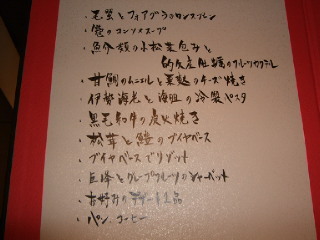 ・毛蟹とフォアグラのコンソメジュレ
・鱧のコンソメスープ
・魚介類の小松菜包みと
的矢産牡蠣のフルーツカクテル
・甘鯛のムニエルと茶碗のチーズ焼き
・伊勢海老と海胆の冷製パスタ
・黒毛和牛の炭火焼き
・松茸と鱧のブイヤベース
・ブイヤベースでリゾット
・巨峰とグレープフルーツのシャーベット
・お好みのデザート1品
・パン、コーヒー